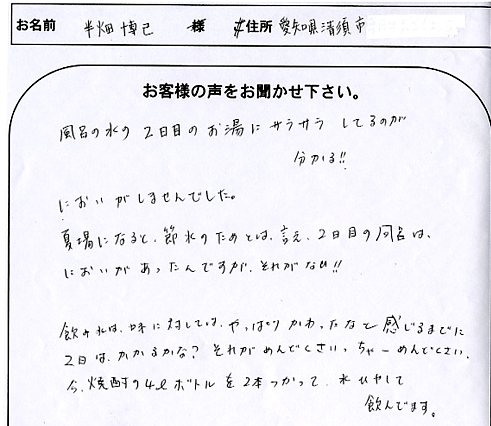 お名前 半畑 博己 様 ご住所 愛知県清須市
お客様の声をお聞かせ下さい。
風呂の水の2日目のお湯にサラサラしてるのが
分かる!!
においがしませんでした。
夏場になると、節水のためとは、言え、2日目の風呂は、
においがあったんですが、それがない!!
飲み水は、味に対しては、やっぱりかわったなと感じるまでに
2日は、かかるかな? それがめんどくさいっちゃーめんどくさい。
今、焼酎の4ℓボトルを2本つかって、水ひやして
飲んでます。